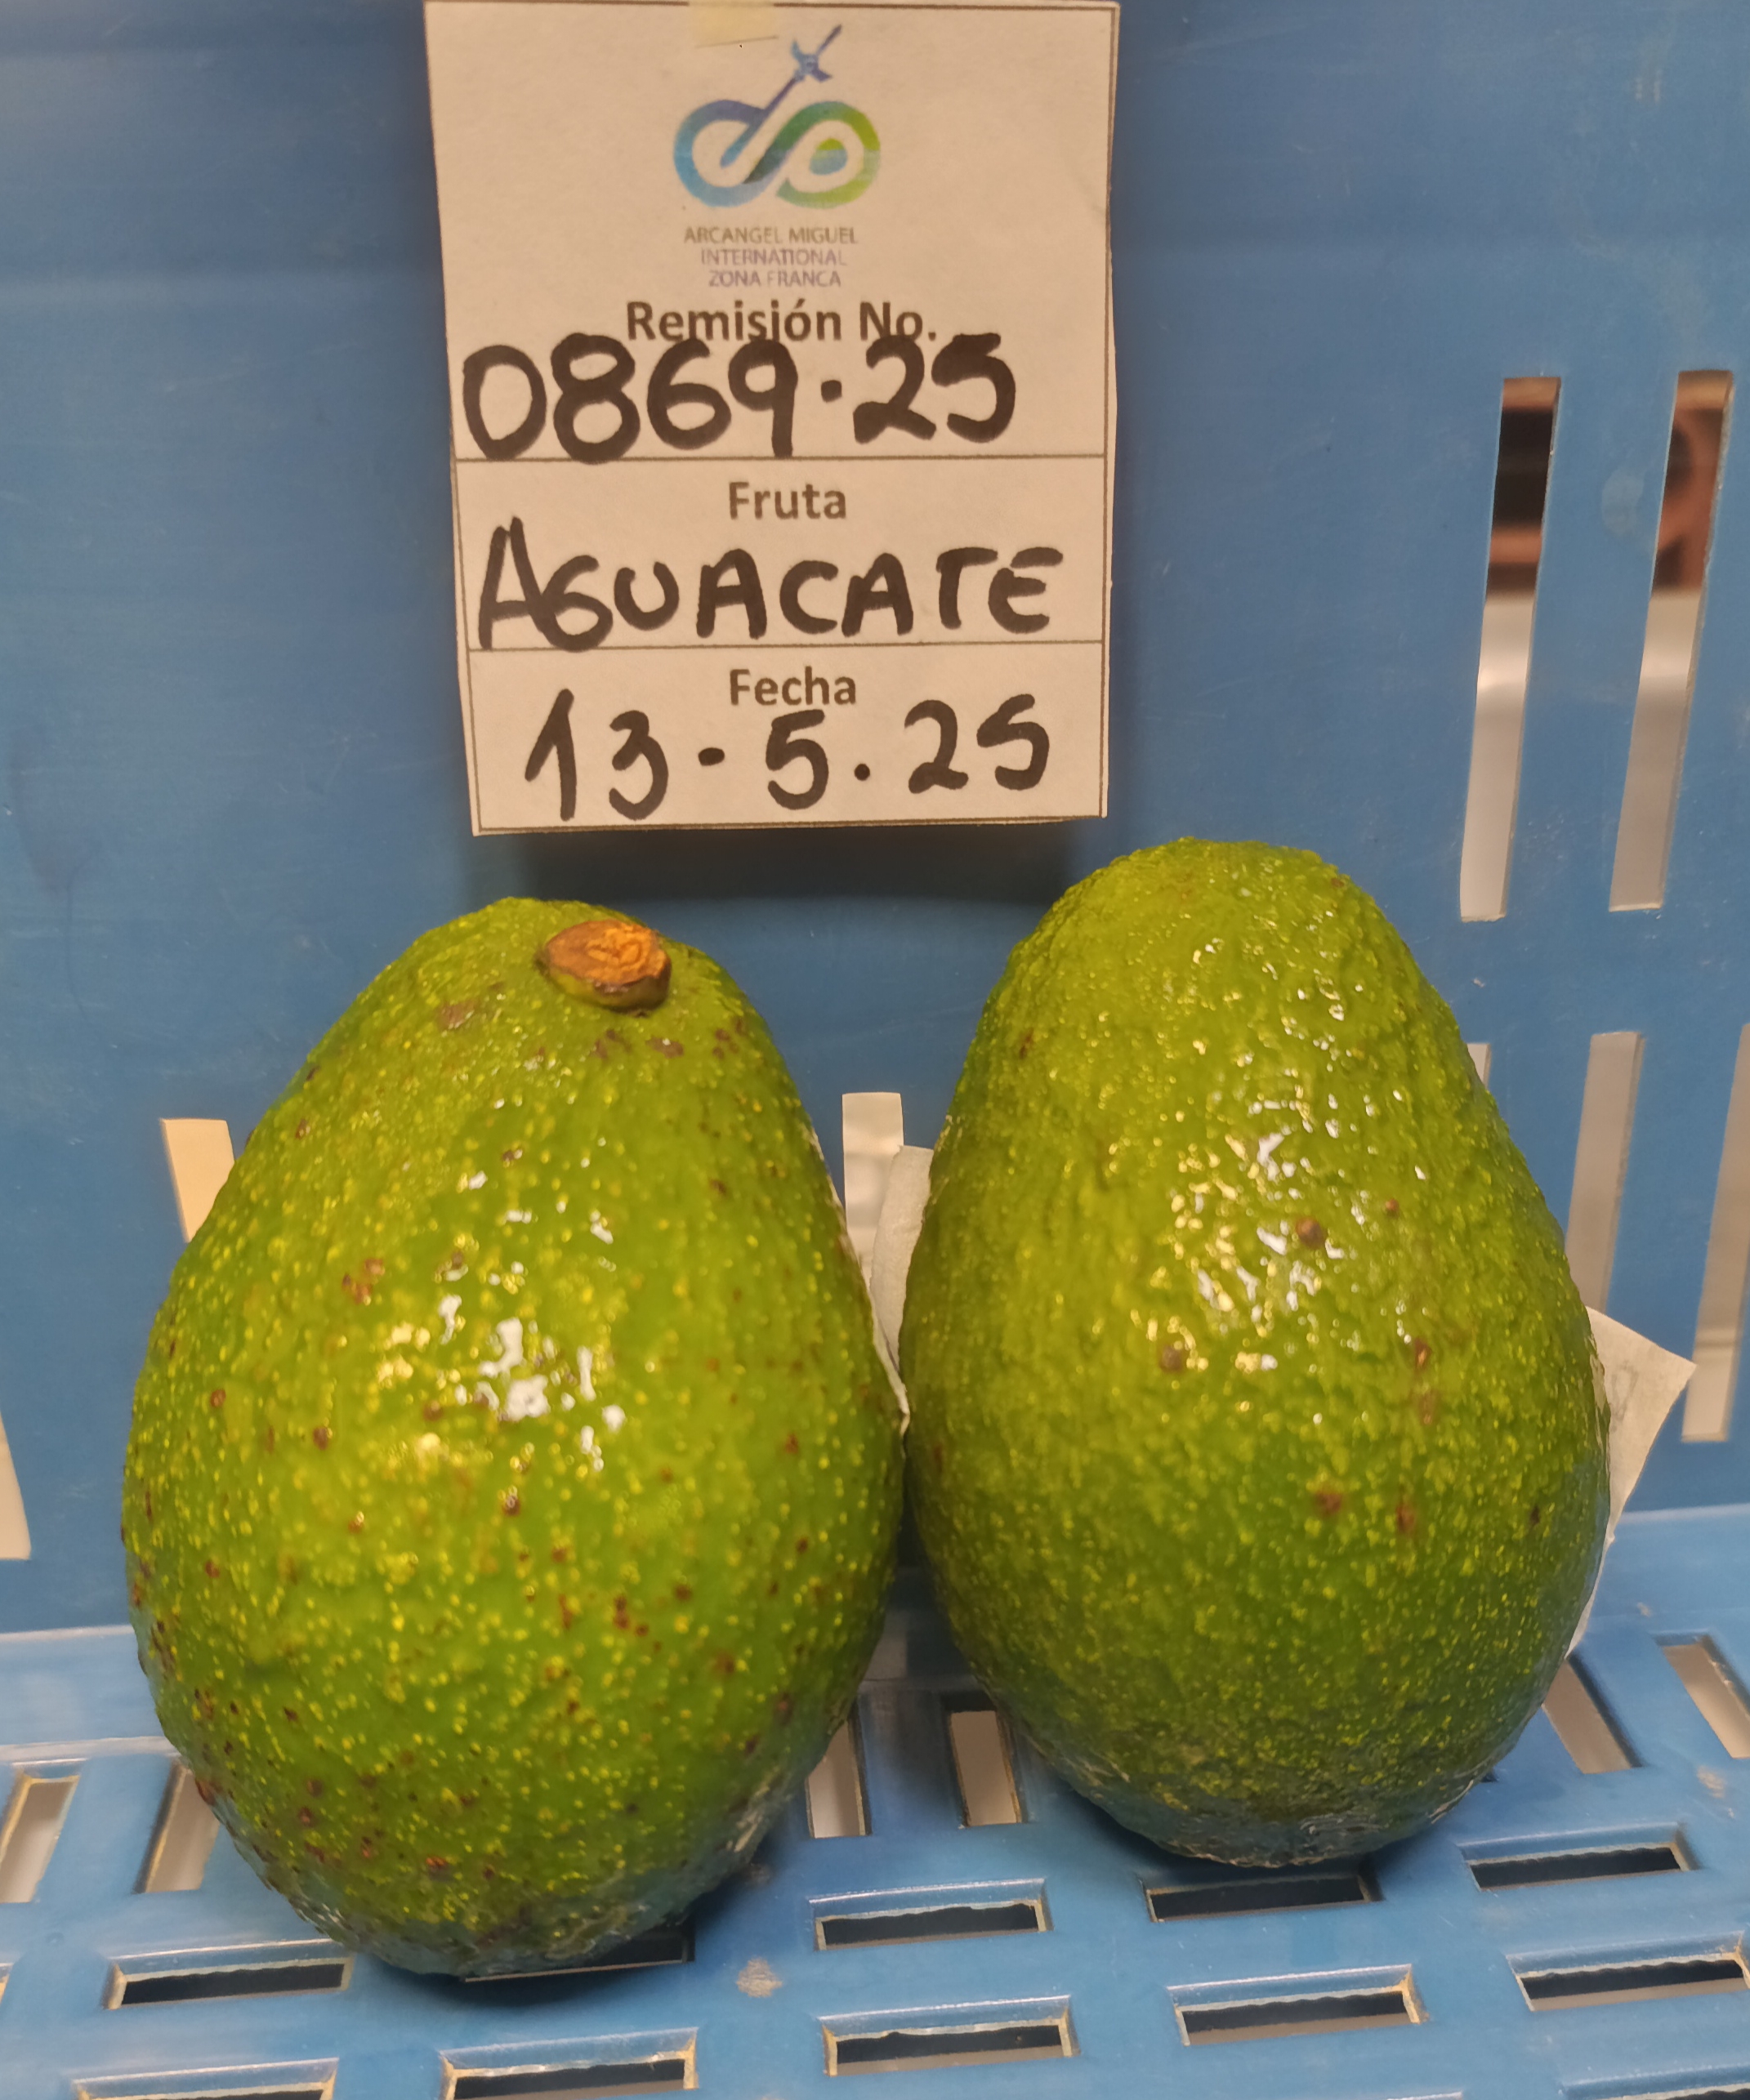 ARCANGEL MIGUEL
INTERNATIONAL
ZONA FRANCA
Remisión No.
0869.25
Fruta
AGUACATE
Fecha
13-5.25